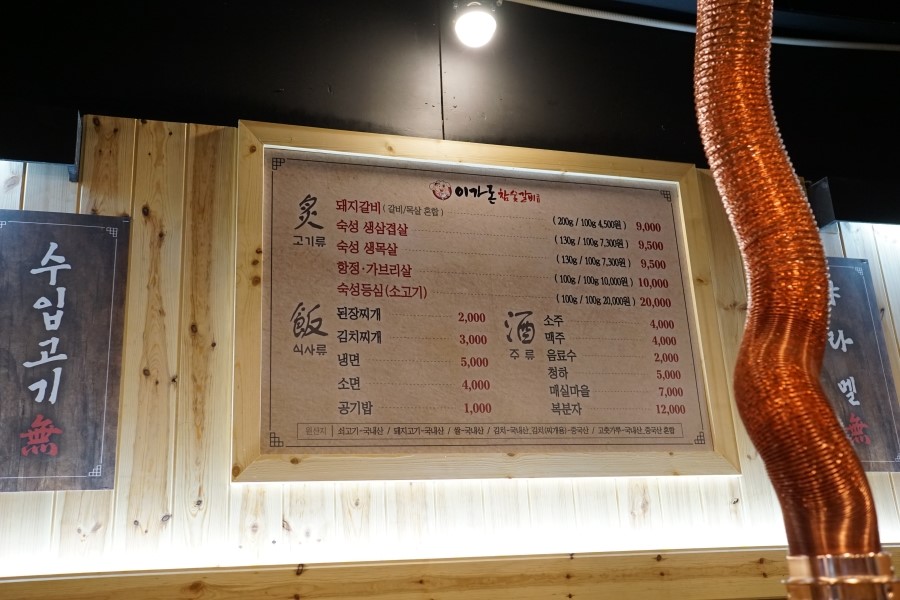 수입고기 無
이가돈 참숯갈비
炙 고기류
돼지갈비 (갈비/목살 혼합) (200g / 100g 4,500원) 9,000
숙성 생삼겹살 (130g / 100g 7,300원) 9,500
숙성 생목살 (130g / 100g 7,300원) 9,500
항정·가브리살 (100g / 100g 10,000원) 10,000
숙성등심(소고기) (100g / 100g 20,000원) 20,000
飯 식사류
된장찌개 2,000
김치찌개 3,000
냉면 5,000
소면 4,000
공기밥 1,000
酒 주류
소주 4,000
맥주 4,000
음료수 2,000
청하 5,000
매실마을 7,000
복분자 12,000
원산지 쇠고기-국내산 / 돼지고기-국내산 / 쌀-국내산 / 김치-국내산,김치(찌개용)-중국산 / 고춧가루-국내산,중국산 혼합
라멜 無